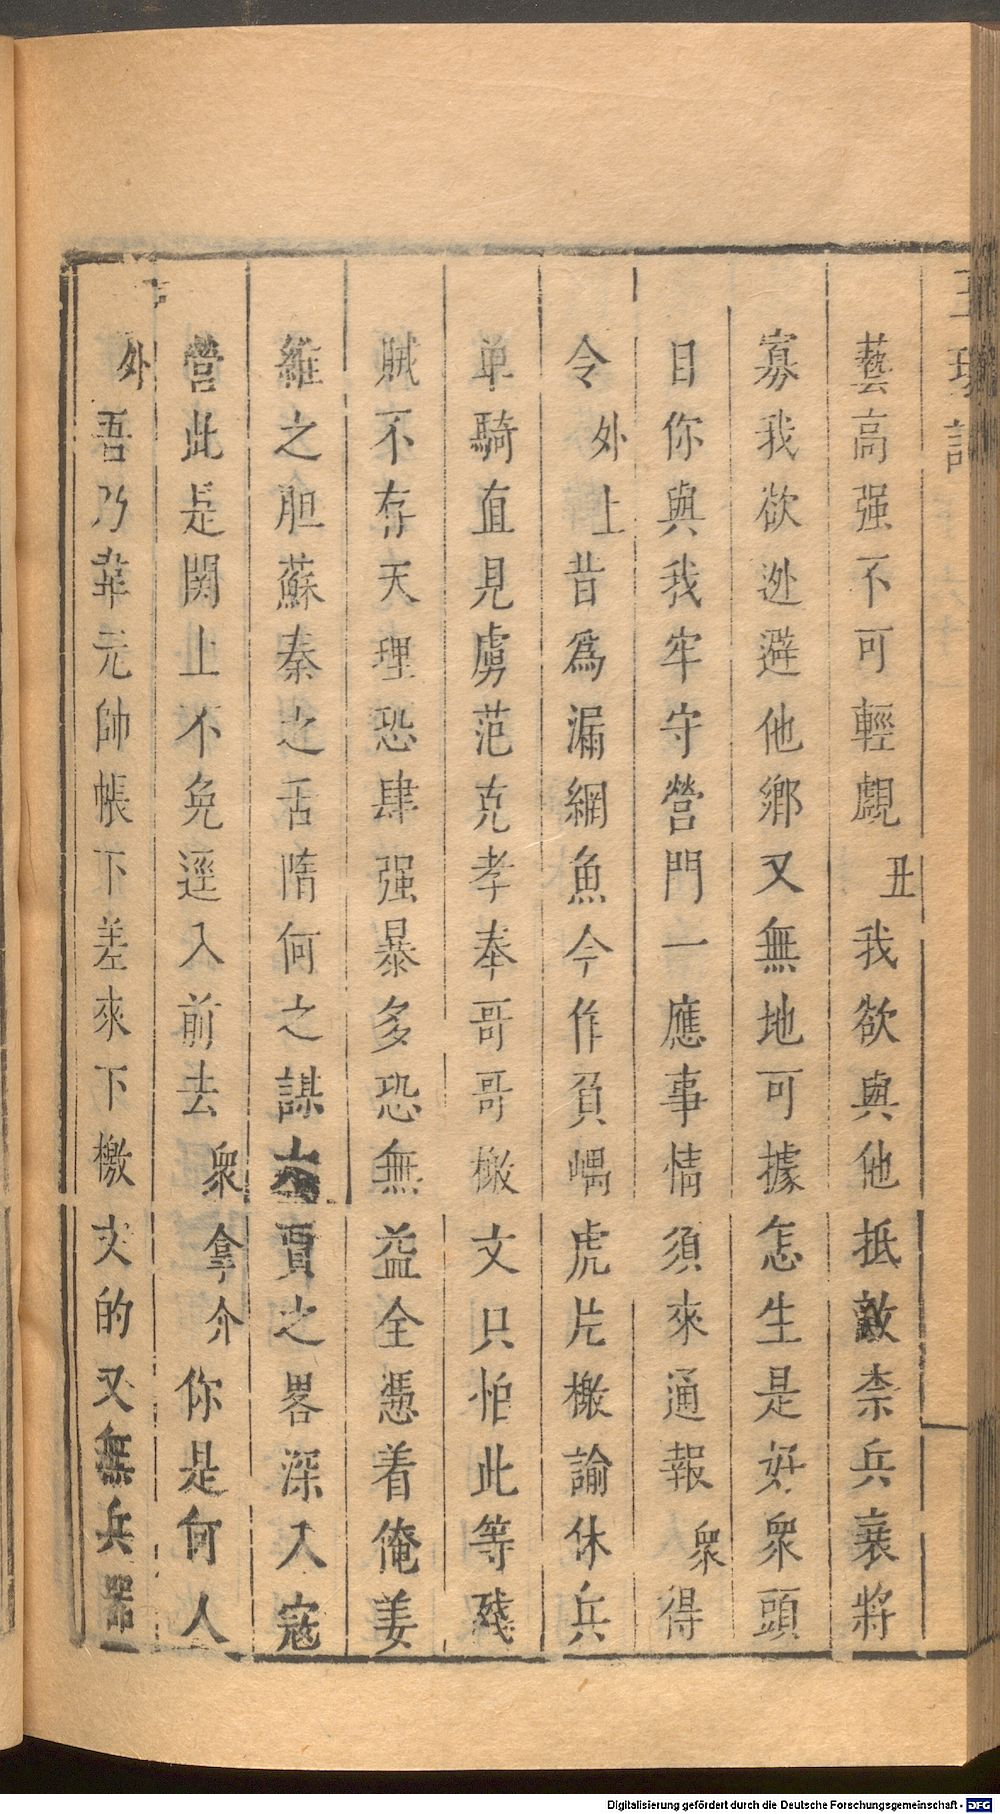 藝高强不可輕覷丑我欲與他抵敵柰兵衰將
寡我欲迯避他鄉又無地可據怎生是好衆頭
目你與我牢守營門一應事情須來通報衆得
令外上昔爲漏網魚今作負嵎虎片檄諭休兵
单騎直見虜范克孝奉哥哥檄文只怕此等殘
賊不存天理恐肆强暴多恐無益全憑着俺姜
維之胆蘇秦之舌隋何之謀賈之畧深入寇
營此是関上不免逕入前去衆拿介你是何人
外吾乃韋元帥帳下差來下檄文的又無兵器
Digitalisierung gefördert durch die Deutsche Forschungsgemeinschaft - DFG